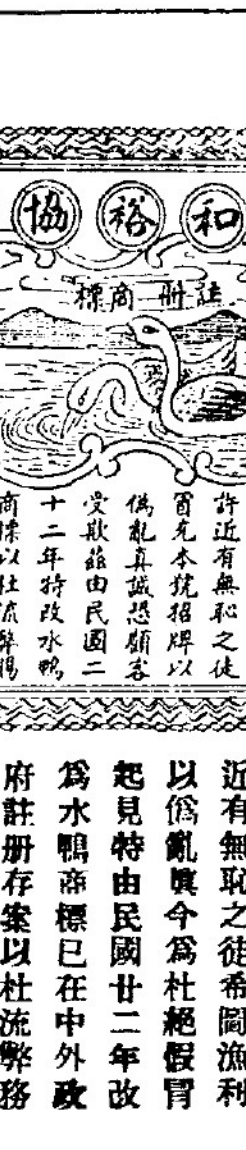 和裕協
註冊商標
許近有無恥之徒
冒充本號招牌以
偽亂真誠恐顧客
受欺茲由民國二
十二年特改水鴨
商標以杜流弊賜
近有無恥之徒希圖漁利
以僞亂眞今爲杜絕假冒
起見特由民國廿二年改
爲水鴨商標已在中外政
府註册存案以杜流弊務